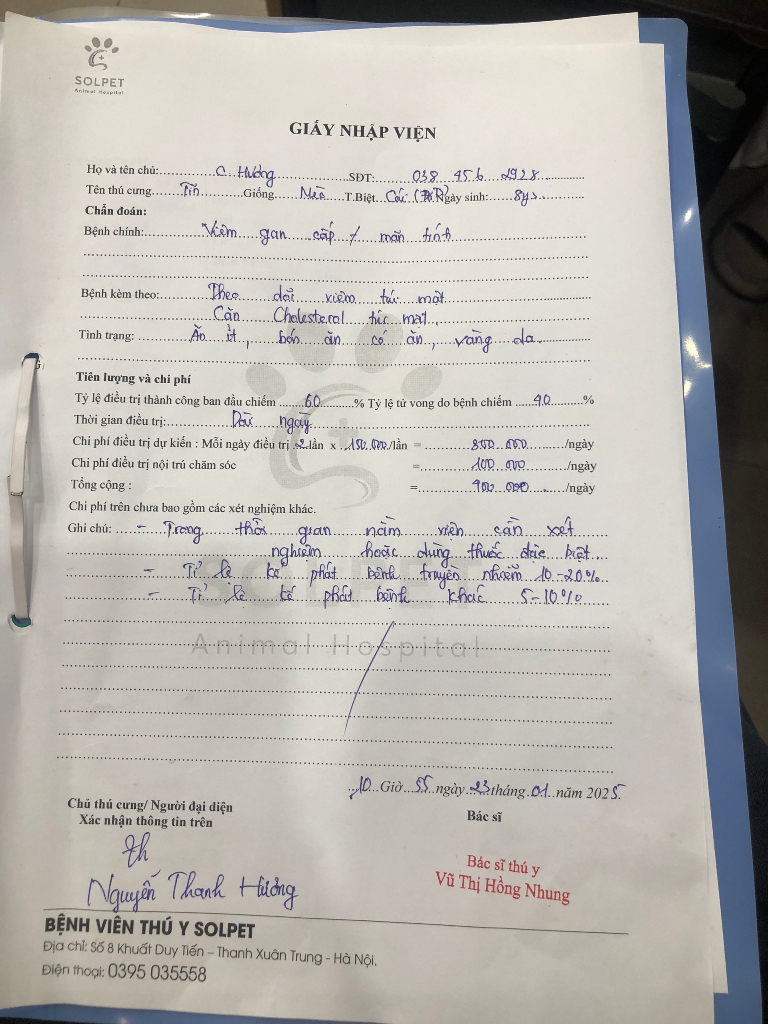 SOLPET
Animal Hospital
GIẤY NHẬP VIỆN
Họ và tên chủ: C. Hương SĐT: 038 456 2928
Tên thú cưng Tín Giống Mèo T.Biệt Cái Ngày sinh: 8ys
Chẩn đoán:
Bệnh chính: Viêm gan cấp / mãn tính
Bệnh kèm theo: Theo dõi viêm túi mật
Cặn Cholesteral túi mật
Tình trạng: Ăn ít, bón ăn có ăn, vàng da.
Tiên lượng và chi phí
Tỷ lệ điều trị thành công ban đầu chiếm 60 % Tỷ lệ tử vong do bệnh chiếm 40 %
Thời gian điều trị: Dài ngày
Chi phí điều trị dự kiến : Mỗi ngày điều trị 2 lần x /lần = 800 000 /ngày
Chi phí điều trị nội trú chăm sóc = 100 000 /ngày
Tổng cộng : = 900 000 /ngày
Chi phí trên chưa bao gồm các xét nghiệm khác.
Ghi chú: - Trong thời gian nằm viện cần xét
nghiệm hoặc dùng thuốc đặc biệt
- Tỉ lệ kế phát bệnh truyền nhiễm 10-20%
- Tỉ lệ kế phát bệnh khác 5-10%
SOLPET
Animal Hospital
10 Giờ 55 ngày 23 tháng 01 năm 2025
Chủ thú cưng/ Người đại diện
Xác nhận thông tin trên
Bác sĩ
Nguyễn Thanh Hương
Bác sĩ thú y
Vũ Thị Hồng Nhung
BỆNH VIỆN THÚ Y SOLPET
Địa chỉ: Số 8 Khuất Duy Tiến – Thanh Xuân Trung - Hà Nội.
Điện thoại: 0395 035558